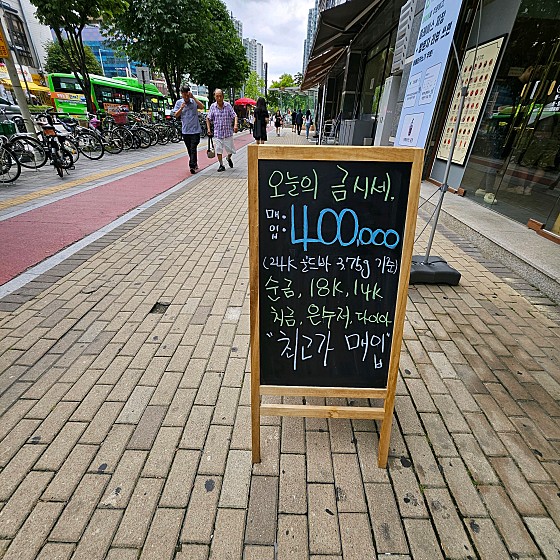 오늘의 금시세.
매입: 400,000
(24K 골드바 3.75g 기준)
순금, 18K, 14K
치금, 은수저, 다이아
"최고가 매입"